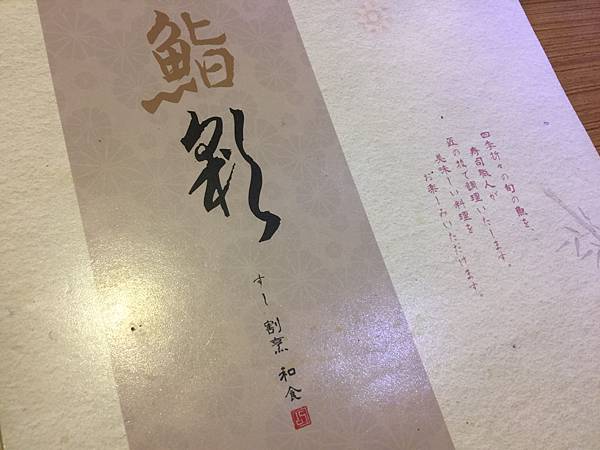 鮨
彩
すし 割烹 和食
四季折々の旬の魚を、
寿司職人が
匠の技で調理いたします。
美味しい料理を
お楽しみいただけます。